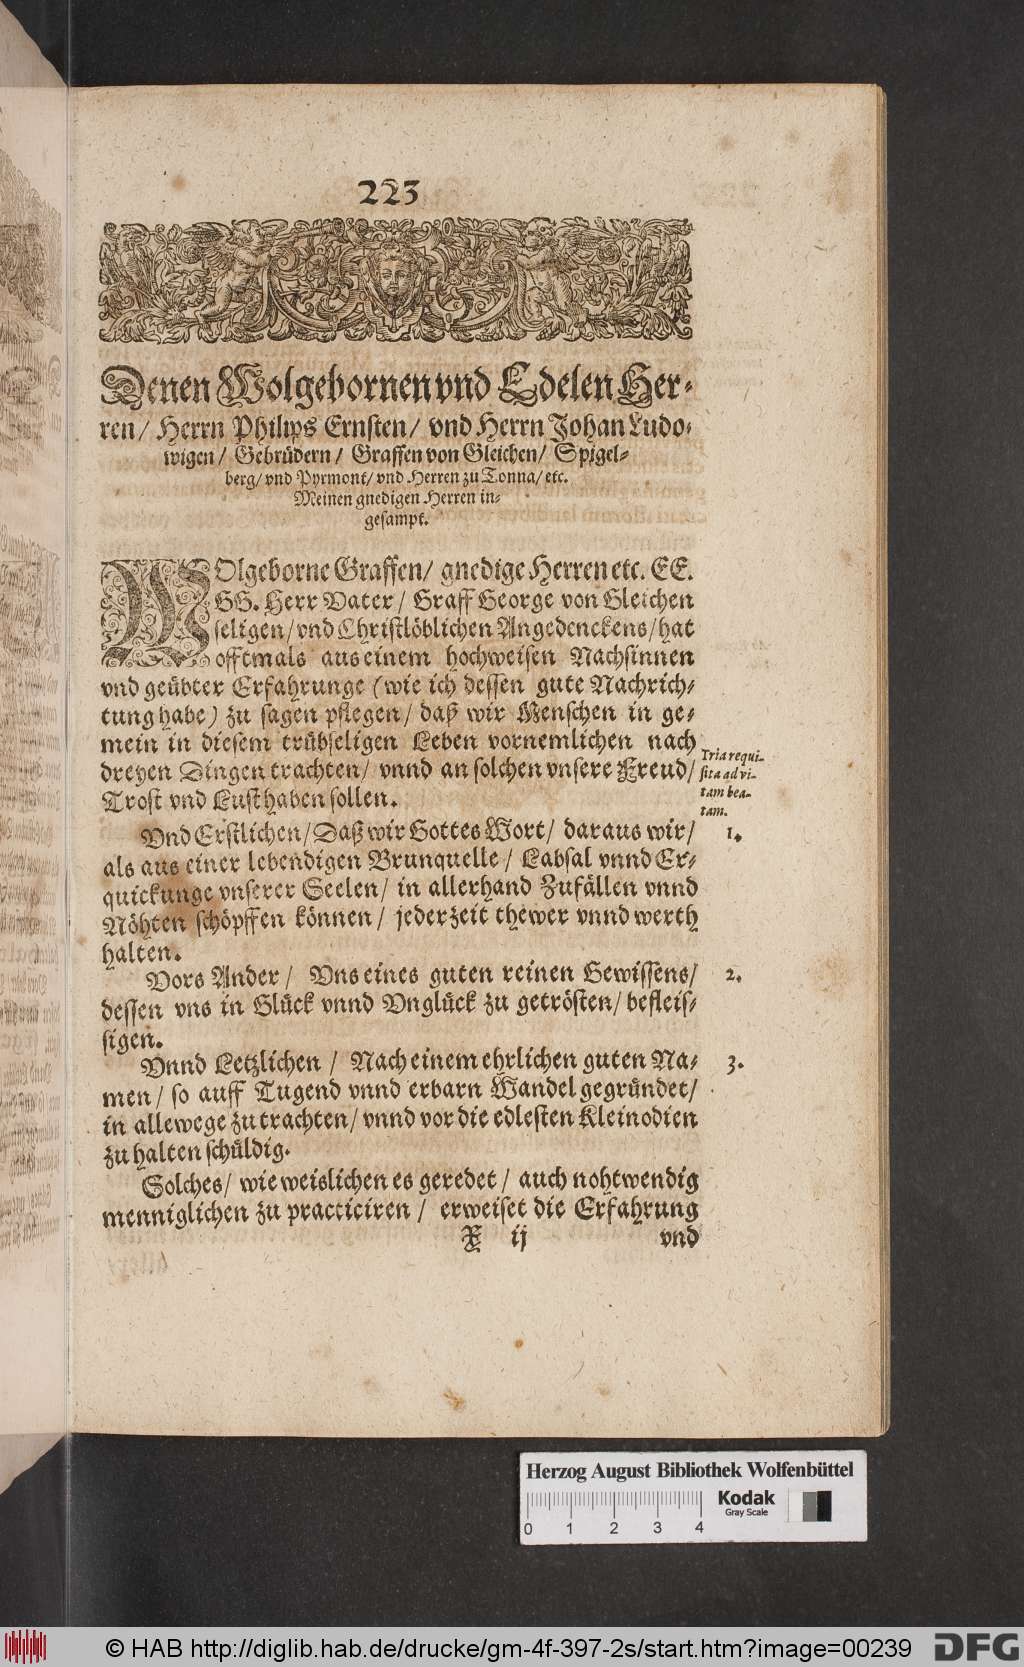 223
Denen Wolgebornen vnd Edelen Her-
ren/ Herrn Philips Ernsten/ vnd Herrn Johan Ludo-
wigen/ Gebrüdern/ Graffen von Gleichen/ Spigel-
berg/ vnd Pyrmont/ vnd Herren zu Tonna/ etc.
Meinen gnedigen Herren in-
gesampt.
WOlgeborne Graffen/ gnedige Herren etc. EE.
GG. Herr Vater/ Graff George von Gleichen
seligen/ vnd Christlöblichen Angedenckens/ hat
offtmals aus einem hochweisen Nachsinnen
vnd geübter Erfahrunge (wie ich dessen gute Nachrich-
tung habe) zu sagen pflegen/ daß wir Menschen in ge-
mein in diesem trübseligen Leben vornemlichen nach
dreyen Dingen trachten/ vnnd an solchen vnsere Freud/
Trost vnd Lust haben sollen.
Tria requi-
sita ad vi-
tam bea-
tam.
Vnd Erstlichen/ Daß wir Gottes Wort/ daraus wir/
1.
als aus einer lebendigen Brunquelle/ Labsal vnnd Er-
quickunge vnserer Seelen/ in allerhand Zufällen vnnd
Nöhten schöpffen können/ jederzeit thewer vnnd werth
halten.
Vors Ander/ Vns eines guten reinen Gewissens/
2.
dessen vns in Glück vnnd Vnglück zu getrösten/ befleis-
sigen.
Vnnd Letzlichen/ Nach einem ehrlichen guten Na-
3.
men/ so auff Tugend vnnd erbarn Wandel gegründet/
in allewege zu trachten/ vnnd vor die edlesten Kleinodien
zu halten schüldig.
Solches/ wie weislichen es geredet/ auch nohtwendig
menniglichen zu practiciren/ erweiset die Erfahrung
X ij vnd
Herzog August Bibliothek Wolfenbüttel
Kodak
Gray Scale
0 1 2 3 4
© HAB http://diglib.hab.de/drucke/gm-4f-397-2s/start.htm?image=00239
DFG